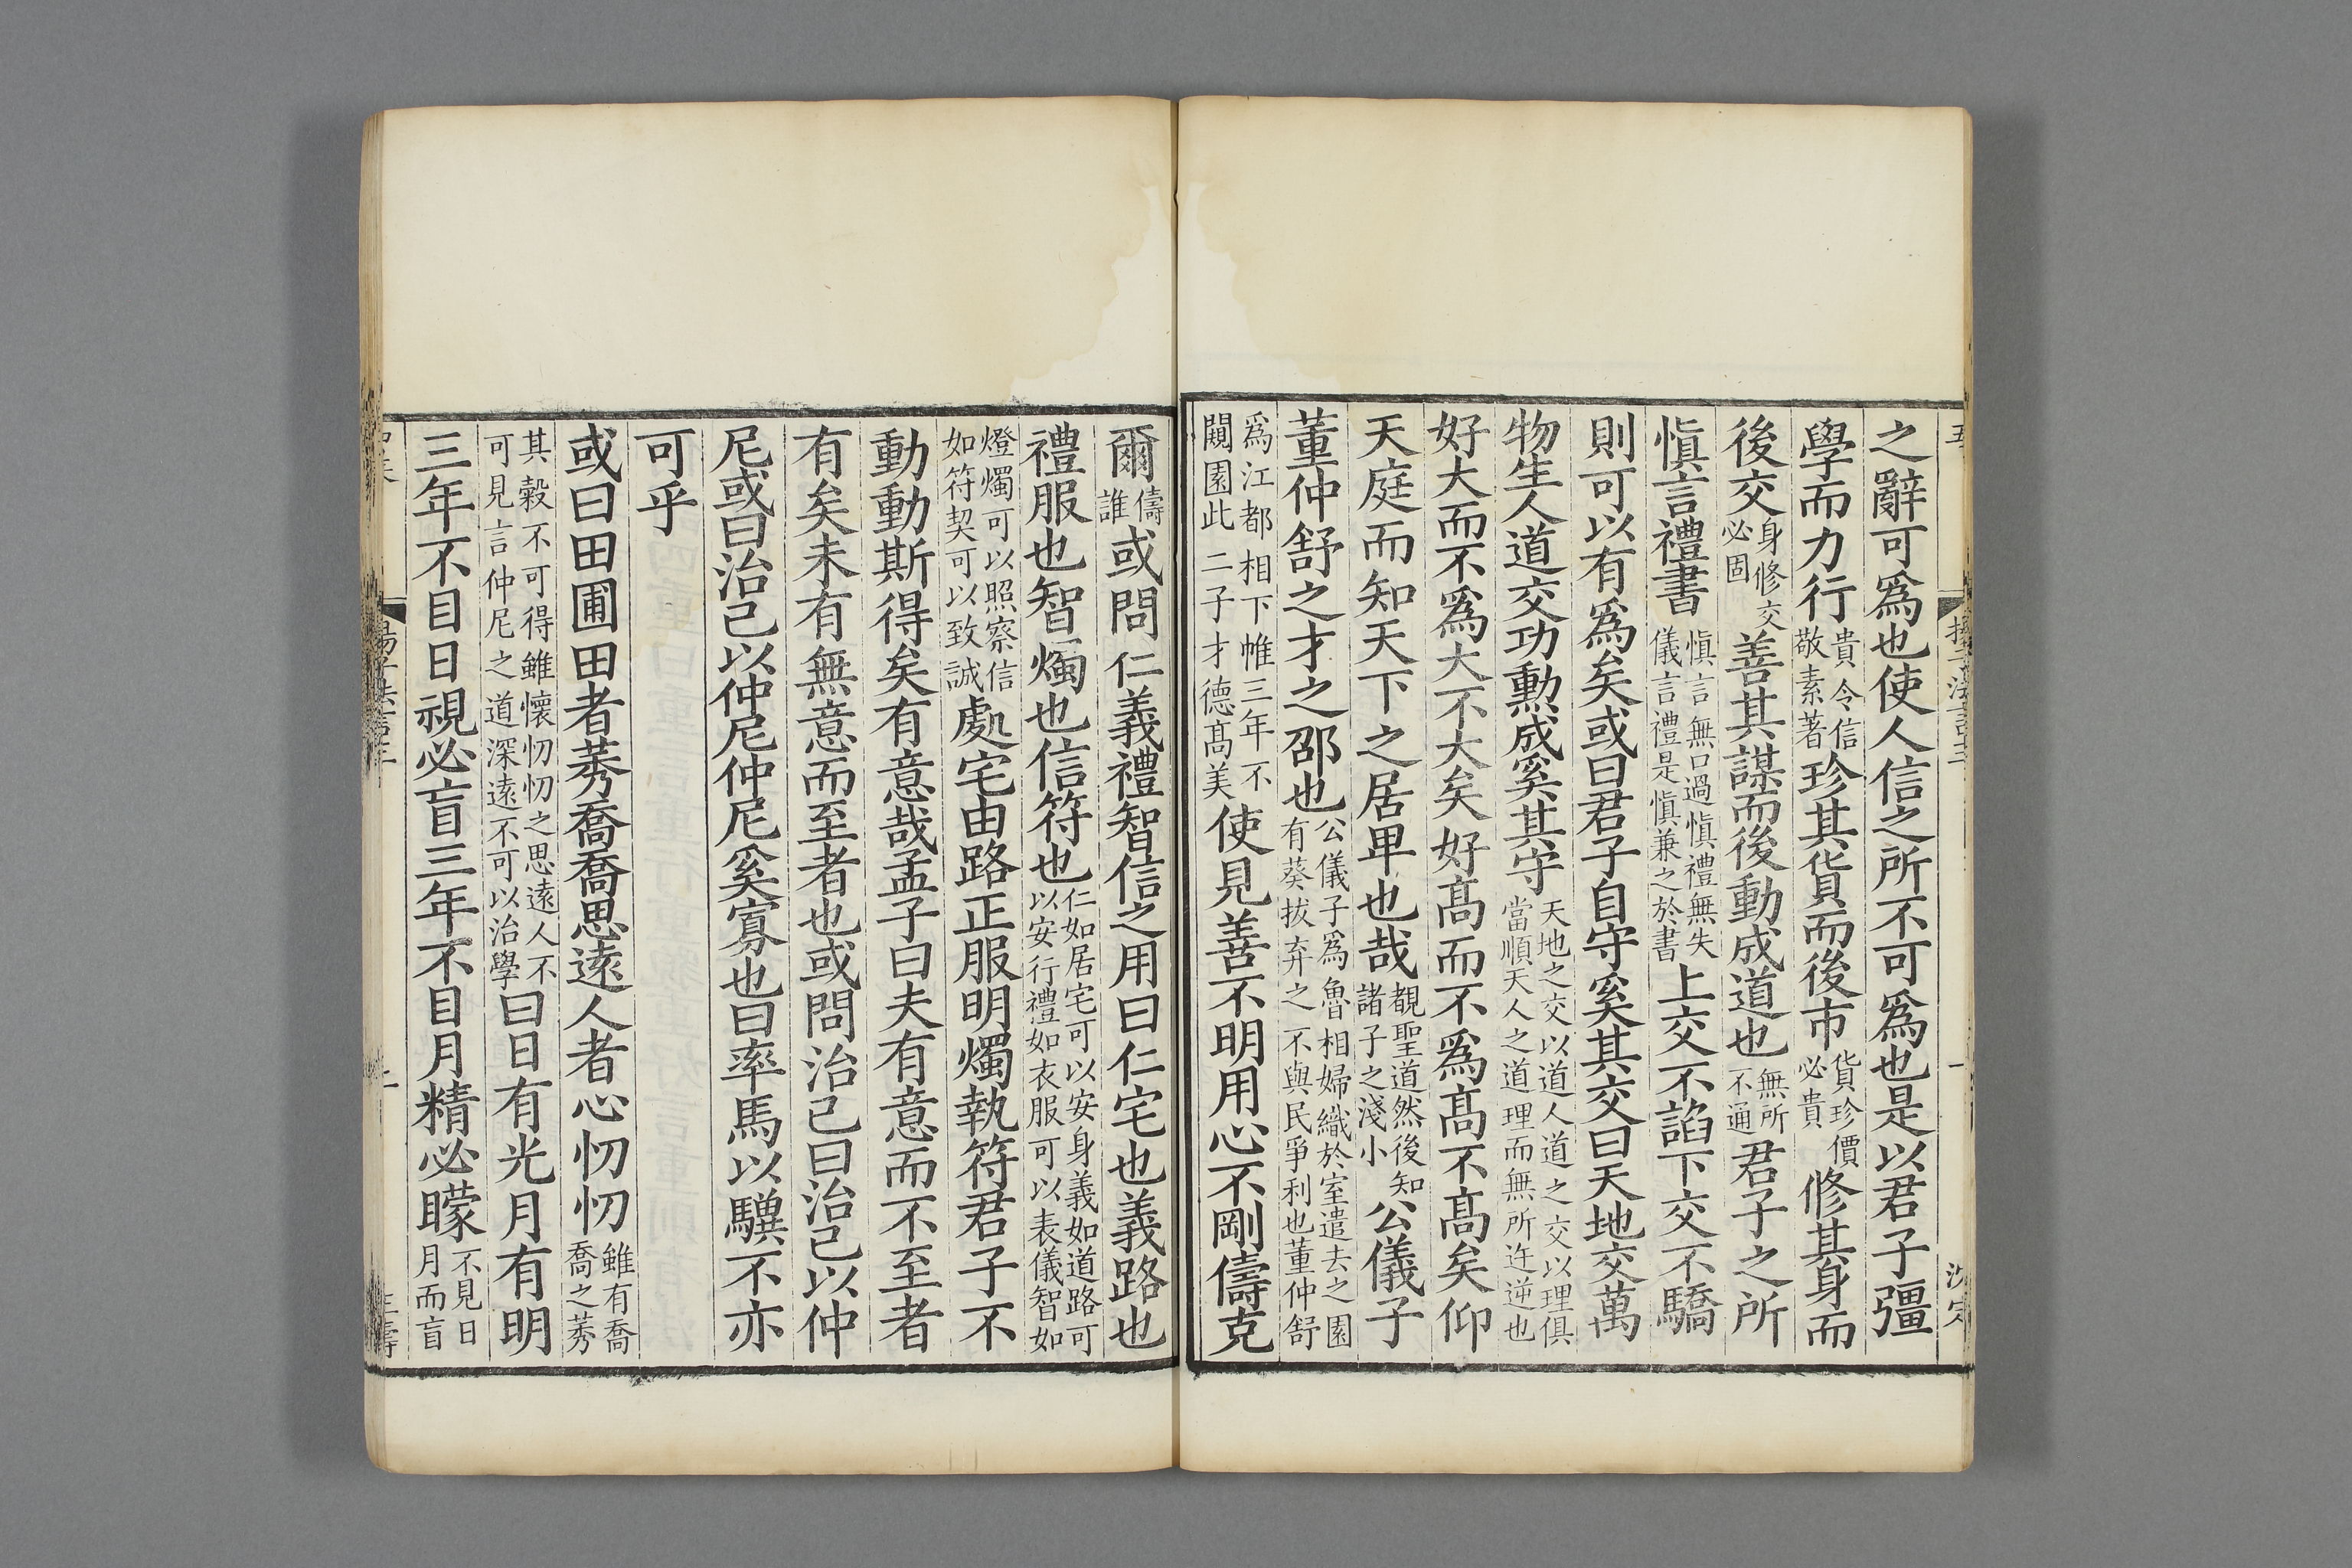 之辭可爲也使人信之所不可爲也是以君子彊
學而力行貴令信敬素著珍其貨而後市貨珍價必貴修其身而
後交身修交必固善其謀而後動成道也無所不通君子之所
愼言禮書愼言無口過愼禮無失儀言禮是愼兼之於書上交不諂下交不驕
則可以有爲矣或曰君子自守奚其交曰天地交萬
物生人道交功勳成奚其守天地之交以道人道之交以理俱當順天人之道理而無所迕逆也
好大而不爲大不大矣好髙而不爲髙不髙矣仰
天庭而知天下之居卑也哉覩聖道然後知諸子之淺小公儀子
董仲舒之才之邵也公儀子爲魯相婦織於室遣去之園有葵拔弃之不與民爭利也董仲舒
爲江都相下帷三年不闚園此二子才德髙美使見善不明用心不剛儔克
爾儔誰或問仁義禮智信之用曰仁宅也義路也
禮服也智燭也信符也仁如居宅可以安身義如道路可以安行禮如衣服可以表儀智如
燈燭可以照察信如符契可以致誠處宅由路正服明燭執符君子不
動動斯得矣有意哉孟子曰夫有意而不至者
有矣未有無意而至者也或問治己曰治己以仲
尼或曰治己以仲尼仲尼奚寡也曰率馬以驥不亦
可乎
或曰田圃田者莠喬喬思遠人者心忉忉雖有喬喬之莠
其穀不可得雖懷忉忉之思遠人不可見言仲尼之道深遠不可以治學曰日有光月有明
三年不目日視必盲三年不目月精必矇不見日月而盲